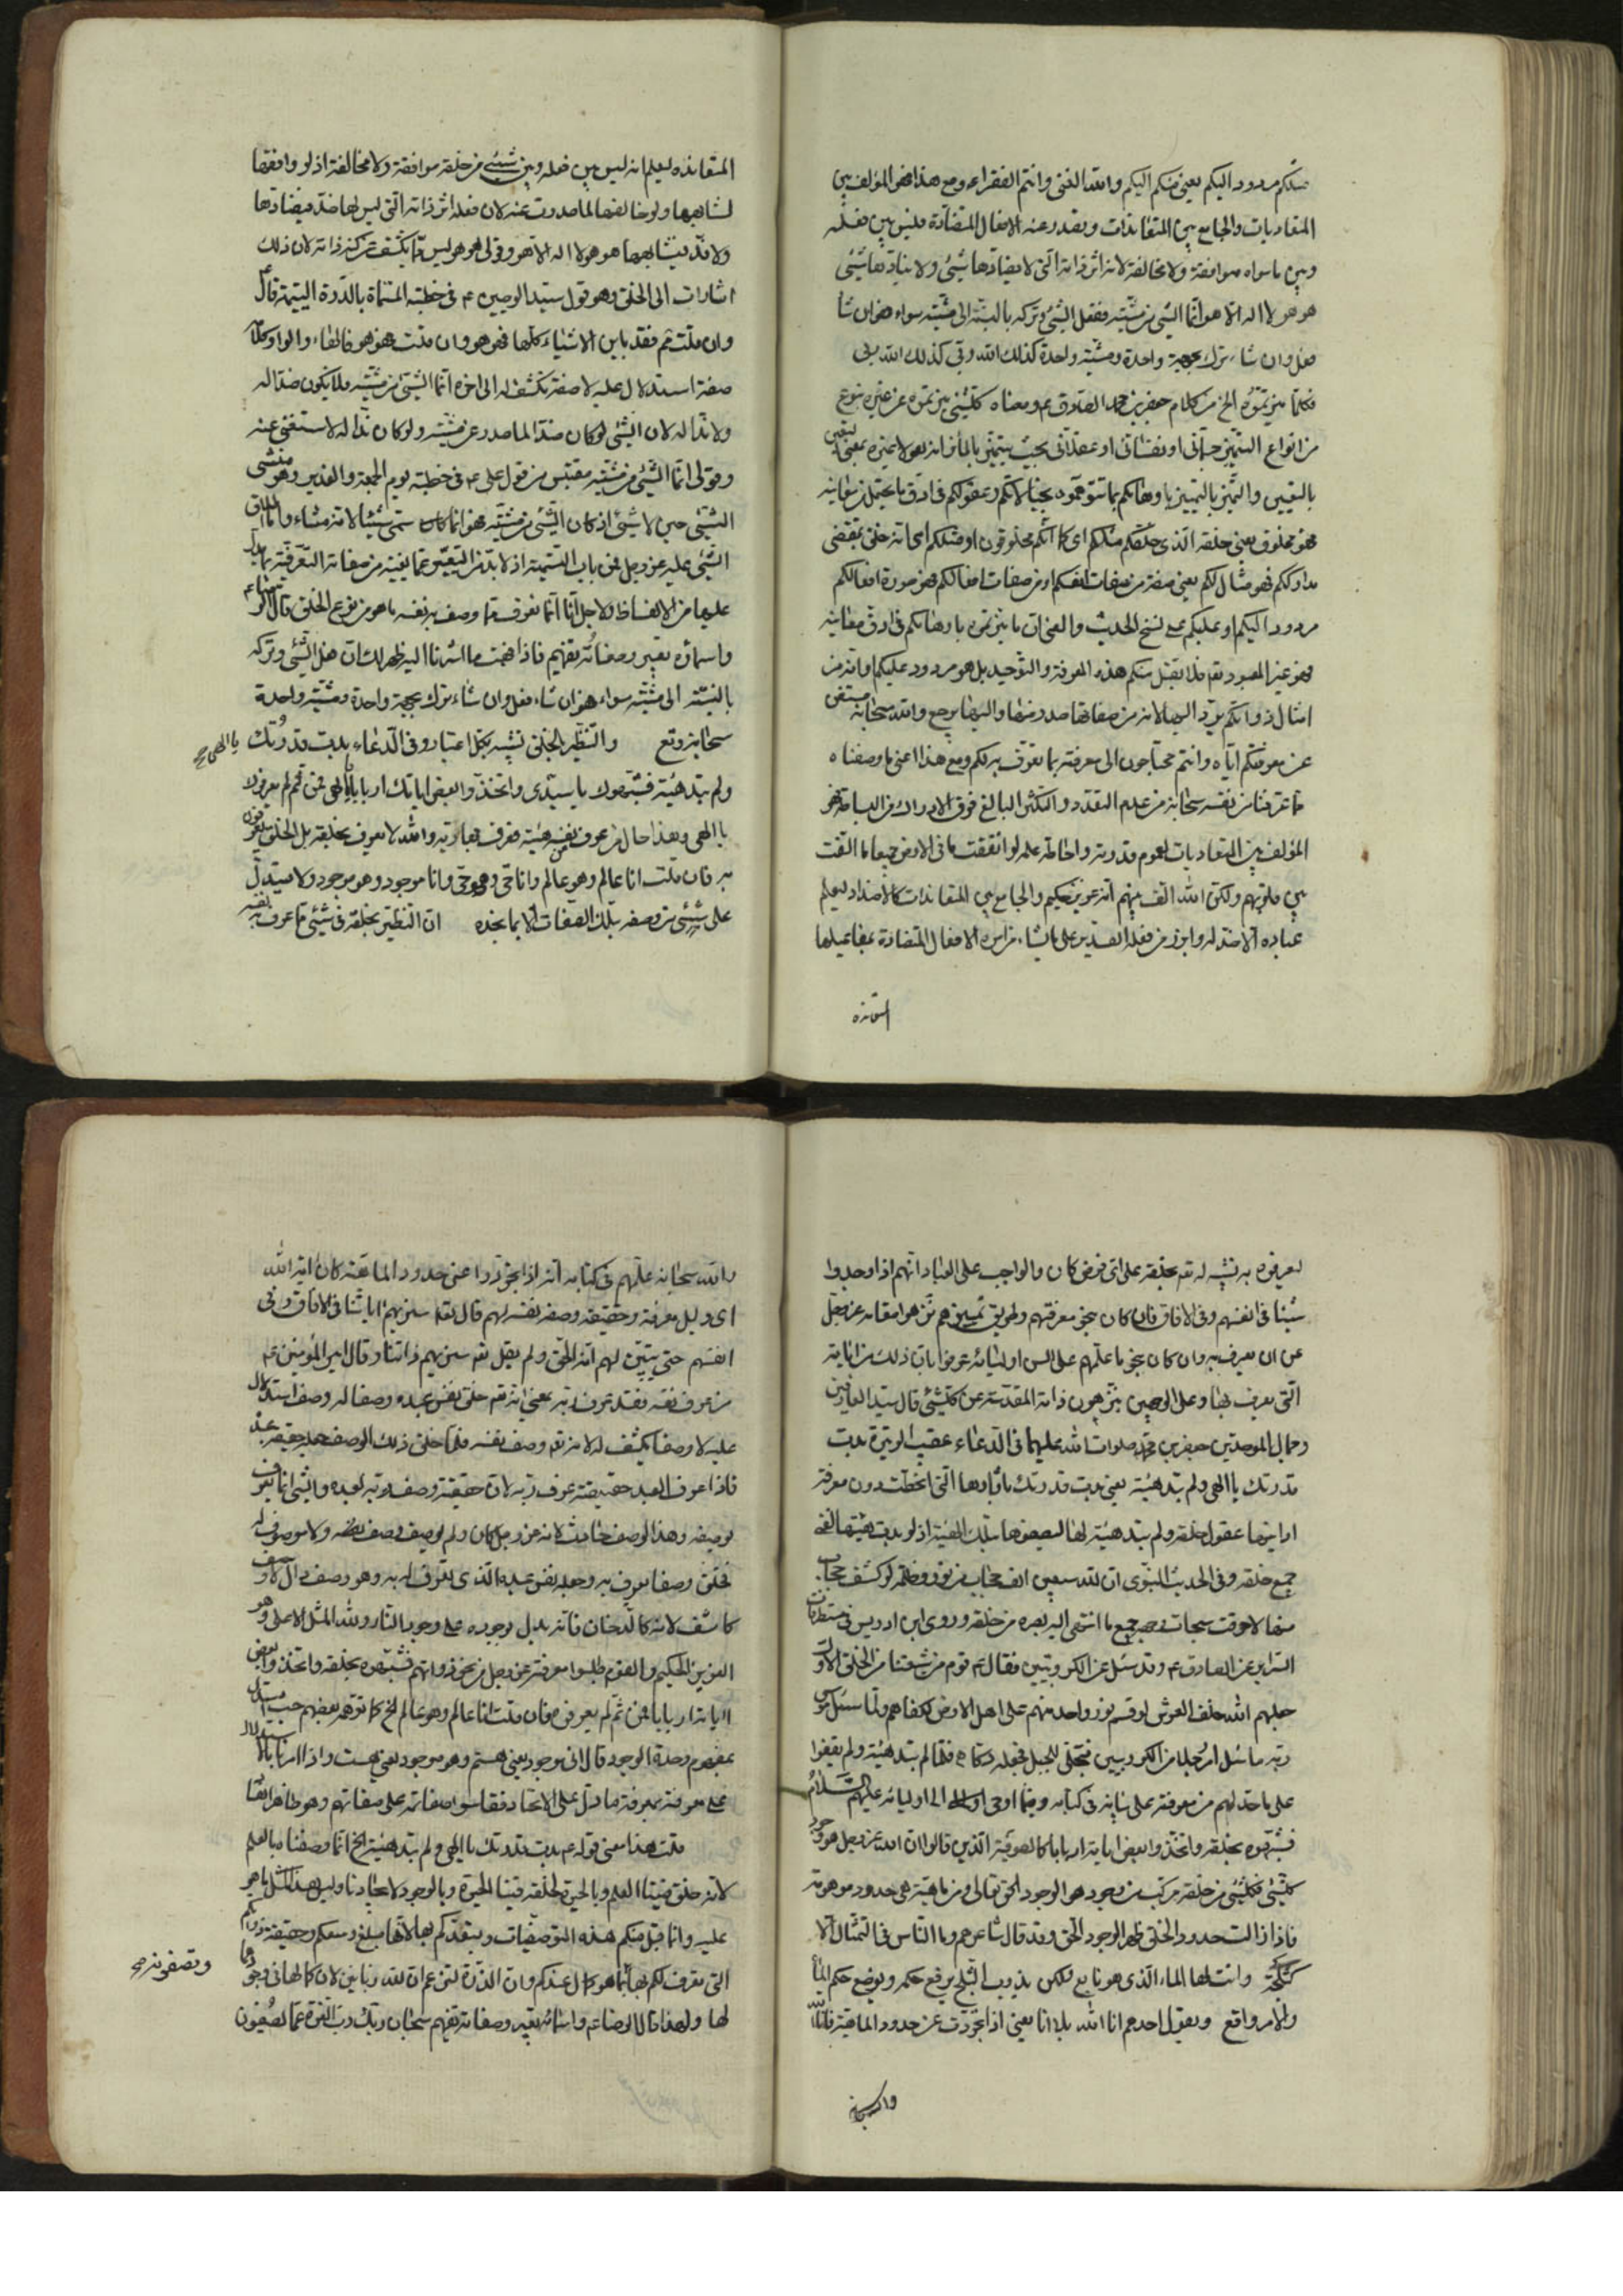 مثلكم مردود اليكم يعني منكم اليكم والله الغني وانتم الفقراء ومع هذا فهو المؤلف بين
المتعاديات والجامع بين المتعاندات وتصدر عنه الافعال المتضادة فليس بين فعله
وبين ما سواه موافقة ولا مخالفة لانه اثر ذاته التي لا يضادها شيئ ولا ينادها شيئ
هو هو لا اله الا هو انما الشيئ من مشيته ففعل الشيئ وتركه بالنسبة الى مشيته سواء فهو ان شاء
فعل وان شاء ترك بجهة واحدة ومشية واحدة كذلك الله ربي كذلك الله ربي
فكلما ميزتموه الخ من كلام جعفر بن محمد الصادق ع ومعناه كلشيئ ميزتموه عن غيره بنوع
من انواع التميز حسّاني او نفساني او عقلاني بحيث يتميز
بالتعيين والتميز بالتمييز باوهامكم بما تتوهموه بخيالاتكم وعقولكم في ادق ما يحتمل من معانيه
فهو مخلوق يعني خلقه الذي خلقكم مثلكم اي كما انكم مخلوقون او مثلكم اي انه خلق بمقتضى
مدارككم فهو مثال لكم يعني صفة من صفات انفسكم او من صفات افعالكم فهو صورة افعالكم
مردود اليكم او عليكم على نسخ الحديث والمعنى ان ما ميزتموه باوهامكم في ادق معانيه
فهو غير المعبود تع فلا يقبل منكم هذه المعرفة والتوحيد بل هو مردود عليكم او انه من
امثال ذواتكم يردّ اليها لانه من صفاتها صدر منها واليها يرجع والله سبحانه مستغن
عن معرفتكم اياه وانتم محتاجون الى معرفته بما تعرف به لكم ومع هذا اعني ما وصفناه
مما عرفنا من نفسه سبحانه من عدم التعدد والتكثر البالغ فوق الادراك من البساطة فهو
المؤلف بين المتعاديات لعموم قدرته واحاطة علمه لو انفقت ما في الارض جميعا ما الفت
بين قلوبهم ولكن الله الف بينهم انه عزيز حكيم والجامع بين المتعاندات كالاضداد ليعلم
عباده الا ضد له وابرز من فعله القدير على ما يشاء من امره الافعال المتضادة بمفاعيلها
المتعاندة
المتعاندة ليعلم انه ليس بين فعله وبين شيئ من خلقه موافقة ولا مخالفة اذ لو وافقها
لشابهها ولو خالفها لما صدرت عنه لان فعله اثر ذاته التي ليس لها ضد فيضادها
ولا ند فيشابهها هو هو لا اله الا هو وقولي هو هو ليس مما يكشف عن كنه ذاته لان ذلك
اشارات الى الخلق وهو قول سيد الوصيين ع في خطبته المسماة بالدرة اليتيمة قال ع
وان قلت مم فقد باين الاشياء كلها فهو هو وان قلت فهو هو فالهاء والواو كلامه
صفة استدلال عليه لا صفة تكشف له الى اخره انما الشيئ من مشيته فلا يكون ضدا له
ولا ندا له لان الشيئ لو كان ضدا لما صدر عن مشيته ولو كان ندا له لاستغنى عنه
وقولي انما الشيئ من مشيته مقتبس من قول علي ع في خطبته يوم الجمعة والغدير وهو منشئ
الشيئ حين لا شيئ اذ كان الشيئ من مشيته فهو انما كان سمي شيئا لانه مشاء واما اطلاق
الشيئ عليه عز وجل فمن باب التسمية اذ لا بد من التعبير عما يفيد من صفاته التعرفية بما يدل
عليها من الالفاظ ولاجل اننا انما نعرف مما وصف به نفسه ما هو من نوع الخلق قال الرضا ع
واسماؤه تعبير وصفاته تفهيم فاذا فهمت ما اشرنا اليه ظهر لك ان فعل الشيئ وتركه
بالنسبة الى مشيته سواء فهو ان شاء فعل وان شاء ترك بجهة واحدة ومشية واحدة
سبحانه وتع والتنظير بالخلق تشبيه بكل اعتبار وفي الدعاء بدت قدرتك يا الهي
ولم تبد هيئة فشبهوك يا سيدي واتخذوا بعض اياتك اربابا يا الهي فمن ثم لم يعرفوك
يا الهي وهذا حال من عرف نفسه هيئة فعرف بها ربه والله لا يعرف بخلقه بل الخلق يعرفون
به فان قلت انا عالم وهو عالم وانا حي وهو حي وانا موجود وهو موجود ولا نستدل
على شيئ من وصفه بتلك الصفات الا بما نجده ان التنظير بخلقه في شيئ مما عرف به نفسه
ليعرفوه به تشبيه له تع بخلقه على اي فرض كان والواجب على العباد انهم اذا وجدوا
شيئا في انفسهم وفي الافاق فان كان بنحو معرفتهم وطريق تمييزهم نزهوا مقامه عز وجل
عن ان يعرف به وان كان بنحو ما علمهم على السن اوليائه عرفوا بان ذلك من اياته
التي يعرف بها وعلى الوجهين ينزهون ذاته المقدسة عن كلشيئ قال سيد العارفين
وجمال الموحدين جعفر بن محمد صلوات الله عليهما في الدعاء عقيب الوتيرة بدت
قدرتك يا الهي ولم تبد هيئة يعني بدت قدرتك باثارها التي انحطت دون معرفة
ادانيها عقول خلقه ولم تبد هيئة لها ليصفوها بتلك الهيئة اذ لو بدت هيئتها لفني
جميع خلقه وفي الحديث النبوي ان لله سبعين الف حجاب من نور وظلمة لو كشف حجاب
منها لاحرقت سبحات وجهه جميع ما انتهى اليه بصره من خلقه وروى ابن ادريس في مستطرفات
السرائر عن الصادق ع وقد سئل عن الكروبيين فقال ع قوم من شيعتنا من الخلق الاول
جعلهم الله خلف العرش لو قسم نور واحد منهم على اهل الارض لكفاهم ولما سئل موسى
ربه ما سئل امر رجلا من الكروبيين فتجلى للجبل فجعله دكا فلما لم تبد هيئة ولم يقفوا
على ما حد لهم من معرفته على ما بينه في كتابه وفيما اوحى الى اوليائه عليهم السلام
فشبهوه بخلقه واتخذوا بعض اياته اربابا كالصوفية الذين قالوا ان الله عز وجل هو وجود
كلشيئ فكلشيئ من خلقه مركب من وجود هو الوجود الحق تعالى ومن ماهية هي حدود موهومة
فاذا زالت حدود الخلق ظهر الوجود الحق وقد قال شاعرهم وما الناس في التمثال الا
كثلجة وانت لها الماء الذي هو نابع ولكن بذوب الثلج يرفع حكمه ويوضع حكم الماء
والامر واقع ويقول احدهم انا الله بلا انا يعني اذا تجردت عن حدود الماهية فانا الله
والله سبحانه
والله سبحانه علمهم في كتابه انه اذا تجردوا عن حدود الماهية كان اية الله
اي دليل معرفته وحقيقة وصفه نفسه لهم قال تع سنريهم اياتنا في الافاق وفي
انفسهم حتى يتبين لهم انه الحق ولم يقل تع سنريهم ذاتنا وقال امير المؤمنين ع
من عرف نفسه فقد عرف ربه بمعنى انه تع خلق نفس عبده وصفا له وصف استدلال
عليه لا وصفا يكشف له لانه تع وصف نفسه فلما خلق ذلك الوصف جعله حقيقة عبده
فاذا عرف العبد حقيقته عرف ربه لان حقيقته وصف ربه لعبده والشيئ انما يعرف
بوصفه وهذا الوصف حادث لانه عز وجل كان ولم يوصف وصف نفسه ولا موصوف له
فخلق وصفا يعرف به وجعله نفس عبده الذي تعرف له به وهو وصف دال لا وصف
كاشف لانه كالدخان فانه يدل بوجوده على وجود النار ولله المثل الاعلى وهو
العزيز الحكيم والقوم طلبوا معرفته عز وجل من نحو ذواتهم فشبهوه بخلقه واتخذوا بعض
اياته اربابا فمن ثم لم يعرفوه فان قلت انا عالم وهو عالم الخ كما توهمه بعضهم حيث استدل
بمفهوم وحدة الوجود قال اني موجود يعني هستم وهو موجود يعني هست واذا امرنا بالاستدلال
على معرفته بمعرفة ما دل على الاتحاد فقاسوا صفاته على صفاتهم وهو ظاهر
قلت هذا معنى قوله ع بدت قدرتك يا الهي ولم تبد هيئة الخ انما وصفناه بالعلم
لانه خلق فينا العلم وبالحيوة لخلقه فينا الحيوة وبالوجود لايجادنا وليس هذا مثل ما هو
عليه وانما قبل منكم هذه التوصيفات وتعبدكم بها لانها مبلغ وسعكم وحقيقة ذواتكم
التي تعرف لكم بها كما هو كمال عندكم وان الذرة لتزعم ان لله زبانيين لان كمالها في وجودهما
لها ولهذا قال الرضا ع واسمائه تعبير وصفاته تفهيم سبحان ربك رب العزة عما يصفون